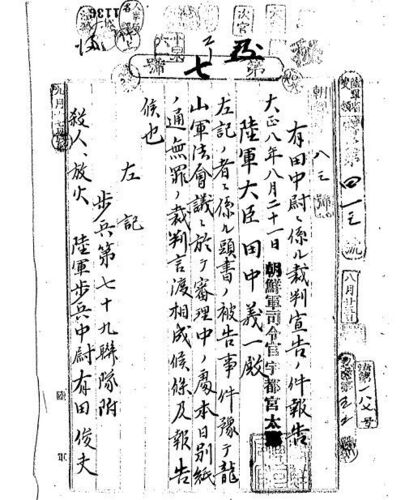 1136
第七號
八三號
有田中尉ニ係ル裁判宣告ノ件報告
大正八年八月二十一日 朝鮮軍司令官 宇都宮太
陸軍大臣 田中義一殿
左記ノ者ニ係ル頭書ノ被告事件豫テ龍
山軍法會議ニ於テ審理中ノ處本日別紙
ノ通無罪ノ裁判言渡相成候條及報告
候也
左記
步兵第七十九聯隊附
殺人、放火 陸軍步兵中尉 有田俊夫
陸軍